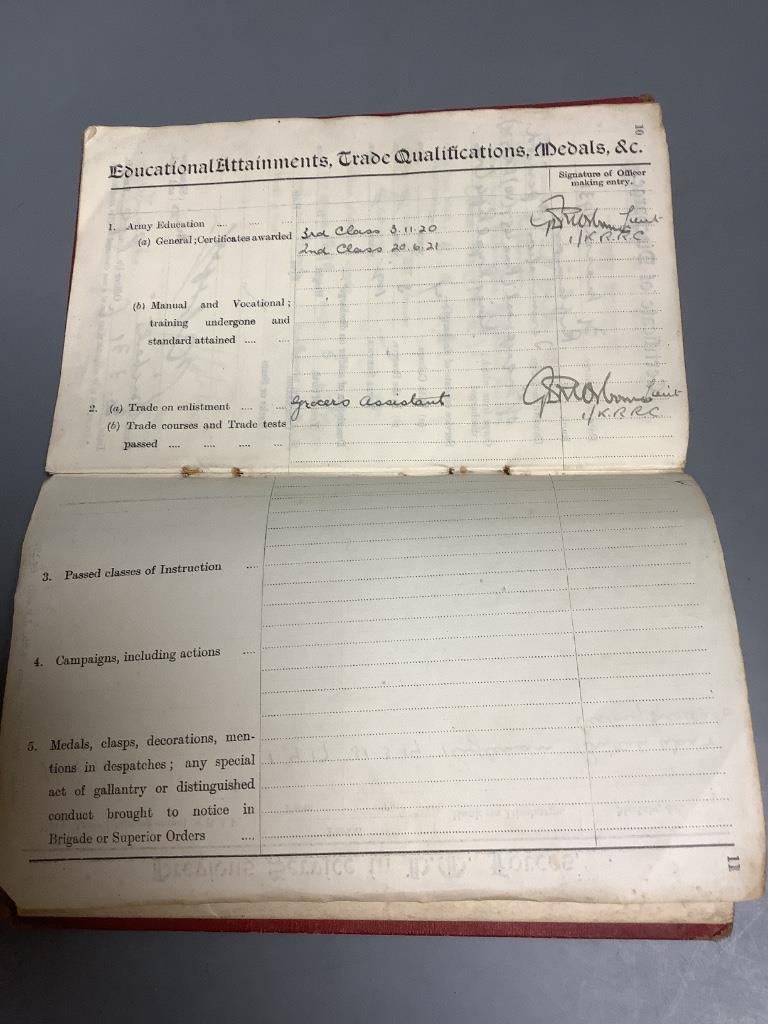 10
Educational Attainments, Trade Qualifications, Medals, &c.
Signature of Officer
making entry.
1. Army Education .... ....
(a) General; Certificates awarded 3rd Class 3.11.20
2nd Class 20.6.21
Lieut
1/K.R.R.C
(b) Manual and Vocational;
training undergone and
standard attained .... ....
2. (a) Trade on enlistment .... .... Grocers Assistant
Lieut
1/K.R.R.C
(b) Trade courses and Trade tests
passed .... .... .... ....
3. Passed classes of Instruction ....
4. Campaigns, including actions ....
5. Medals, clasps, decorations, men-
tions in despatches; any special
act of gallantry or distinguished
conduct brought to notice in
Brigade or Superior Orders ....
11